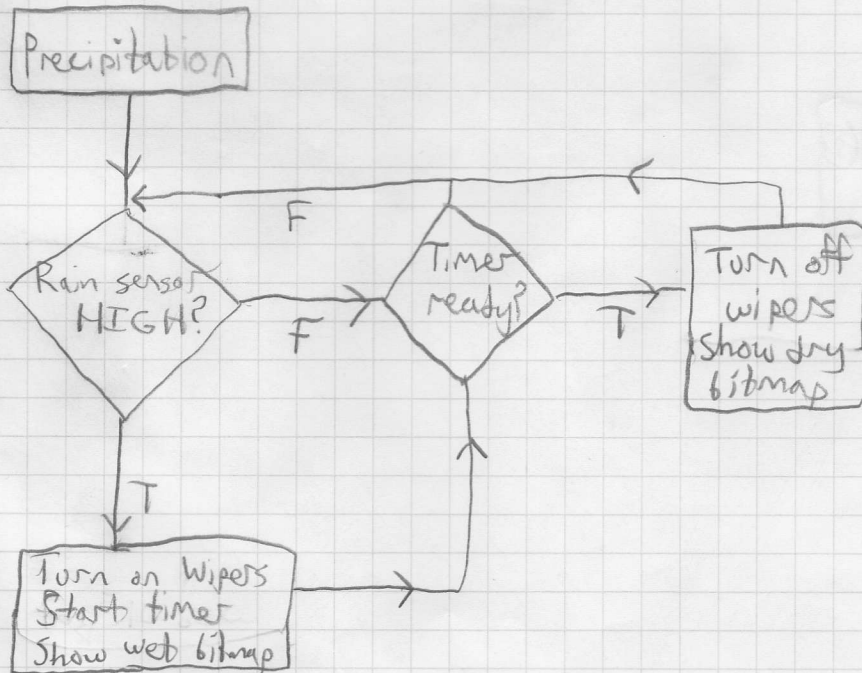 Precipitation
Rain sensor
HIGH?
F
F
Timer
ready?
T
Turn off
wipers
Show dry
bitmap
T
Turn on Wipers
Start timer
Show wet bitmap